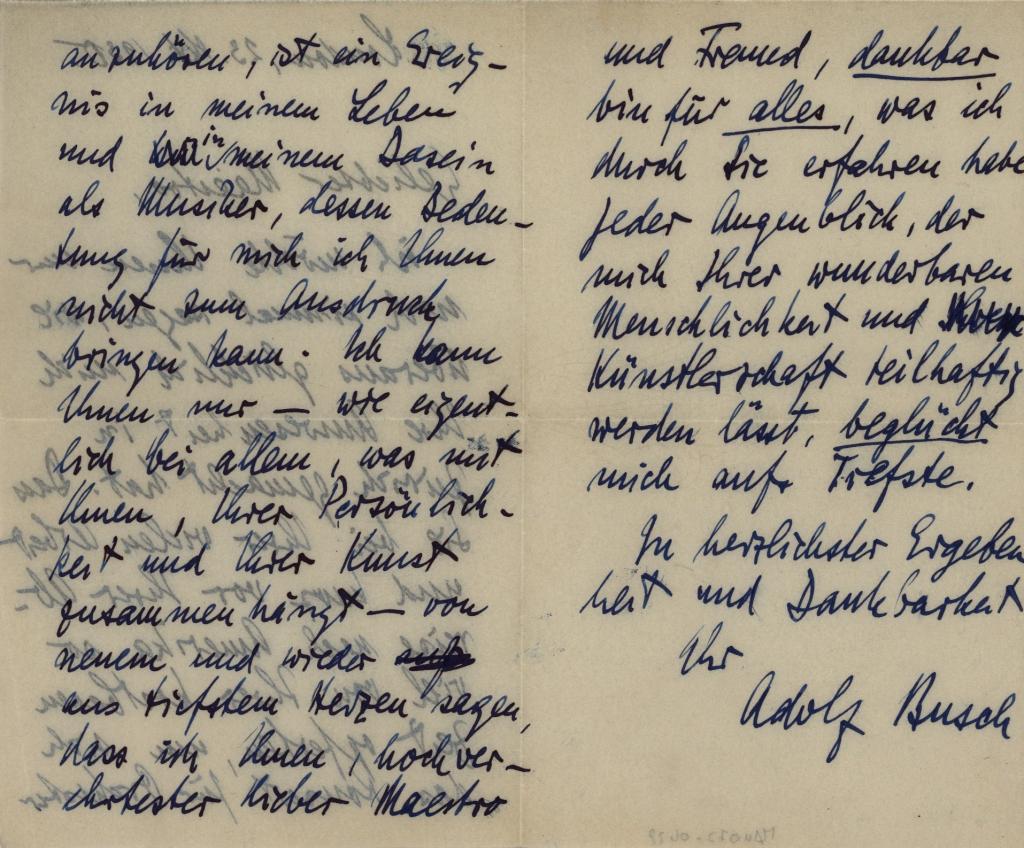 anzuhören, ist ein Ereig-
nis in meinem Leben
und in meinem Dasein
als Musiker, dessen Bedeu-
tung für mich ich Ihnen
nicht zum Ausdruck
bringen kann. Ich kann
Ihnen nur — wie eigent-
lich bei allem, was mit
Ihnen, Ihrer Persönlich-
keit und Ihrer Kunst
zusammenhängt — von
neuem und wieder
aus tiefstem Herzen sagen,
dass ich, Ihnen, hochver-
ehrtester lieber Maestro
und Freund, dankbar
bin für alles, was ich
durch Sie erfahren habe
jeder Augenblick, der
mich Ihrer wunderbaren
Menschlichkeit und
Künstlerschaft teilhaftig
werden lässt, beglückt
mich aufs Tiefste.
In herzlichster Ergeben
heit und Dankbarkeit
Ihr
Adolf Busch